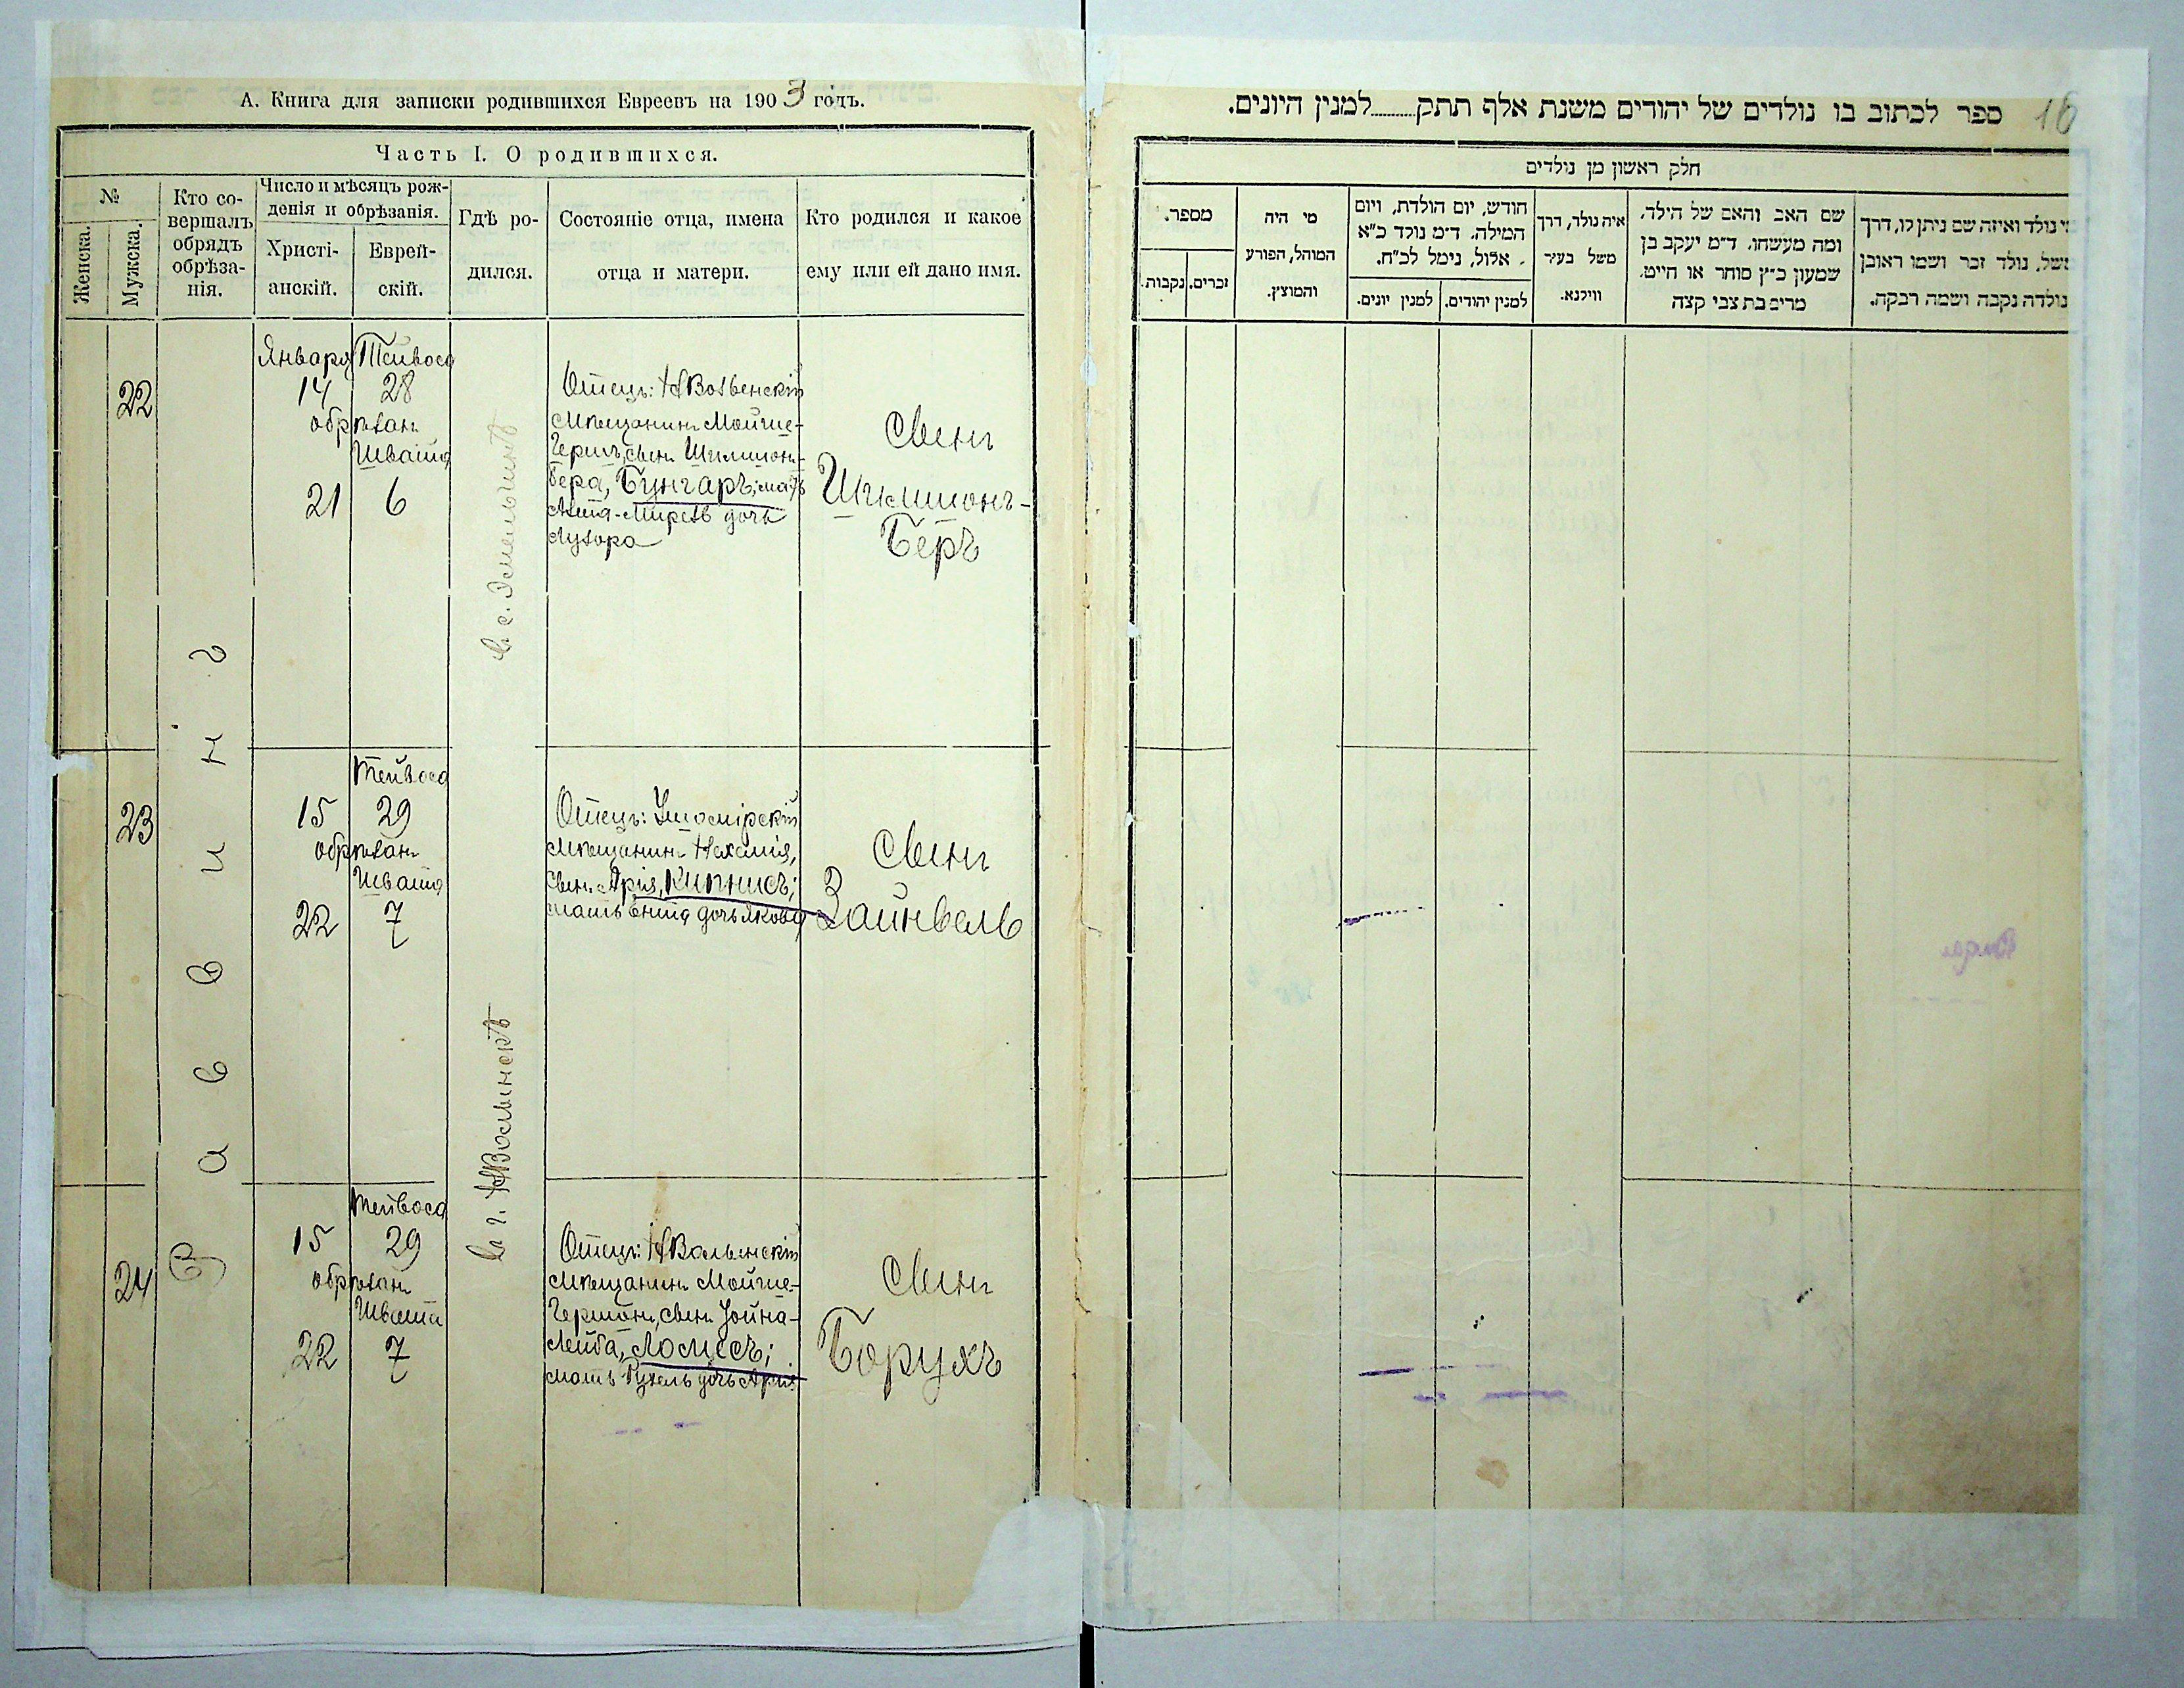 А. Книга для записки родившихся Евреевъ на 1903 годъ.
Часть I. О родившихся.
№
Женска.
Мужска.
Кто со-
вершалъ
обрядъ
обрѣза-
нія.
Число и мѣсяцъ рож-
денія и обрѣзанія.
Христі-
анскій.
Еврей-
скій.
Гдѣ ро-
дился.
Состояніе отца, имена
отца и матери.
Кто родился и какое
ему или ей дано имя.
22
Января Тейвоса
14 28
обрѣзан
Швата
21 6
Отецъ:
мѣщанинъ Мойше-
Герш, сынъ Шлимон-
Бера, Бунгаръ; мать
дочь
Лузора
Сынъ
Шлимонъ-
Беръ
Раввинъ
23
Тейвоса
15 29
обрѣзан
Швата
22 7
Отецъ: Ушомірскій
мѣщанинъ Нехемія,
сынъ Арія, Кипнисъ;
мать Ента дочь Якова
Сынъ
Зайнвель
въ г. НВолынскѣ
24
Тейвоса
15 29
обрѣзан
Швата
22 7
Отецъ: НВолынскій
мѣщанинъ Мойше-
Гершон, сынъ Іойна-
Лейба, Ломесъ;
мать Рухель дочь Арія
Сынъ
Борухъ
16
ספר לכתוב בו נולדים של יהודים משנת אלף תתק..........למנין היונים.
חלק ראשון מן נולדים
מספר.
זכרים.
נקבות.
מי היה
המוהל, הפורע
והמוצץ.
חודש, יום הולדת, ויום
המילה. ד״מ נולד כ״א
אלול, נימל לכ״ח.
למנין יונים.
למנין יהודים.
איה נולד, דרך
משל בעיר
ווילנא.
שם האב והאם של הילד,
ומה מעשהו. ד״מ יעקב בן
שמעון כ״ץ סוחר או חייט.
מרים בת צבי קצה
נולד ואיזה שם ניתן לו, דרך
משל, נולד זכר ושמו ראובן
נולדה נקבה ושמה רבקה.